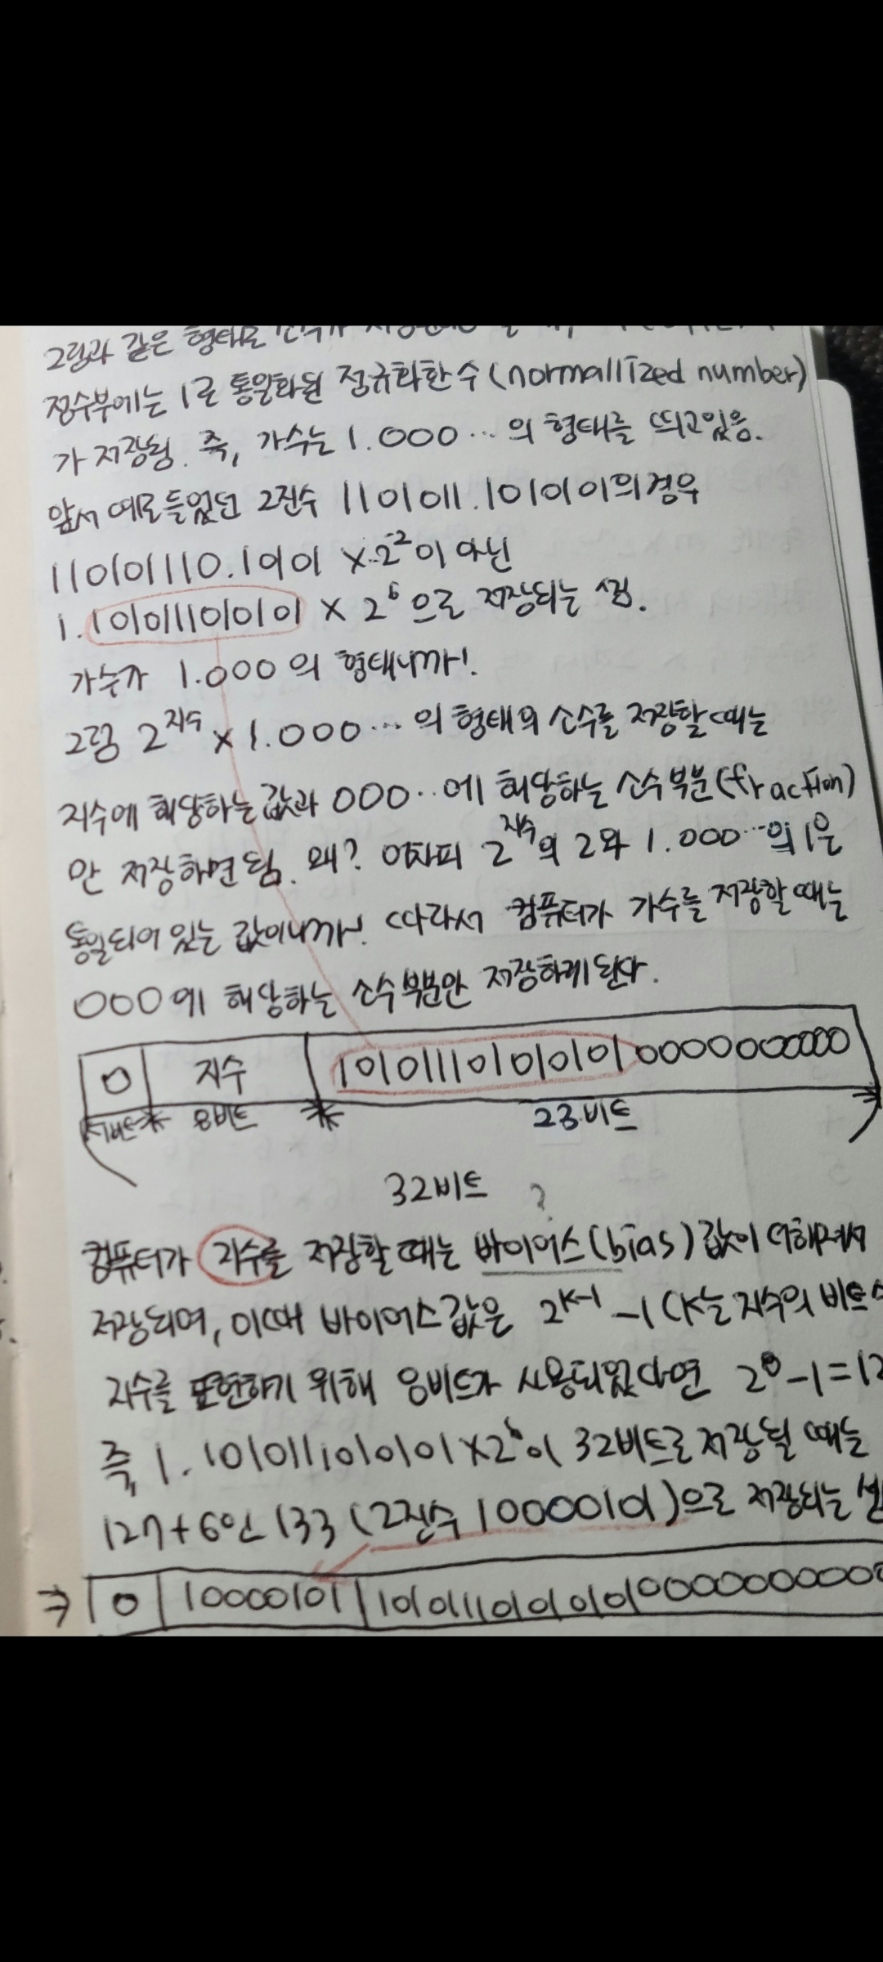 그림과 같은 형태로
정수부에는 1로 통일화된 정규화한 수(normallized number)
가 저장됨. 즉, 가수는 1.000…의 형태를 띄고있음.
앞서 예로 들었던 2진수 1101011.101010101의 경우
11010110.10101 x 2⁻²이 아닌
1.101011101010101 x 2⁶으로 저장되는 셈.
가수가 1.000의 형태니까!
그럼 2지수 x 1.000…의 형태의 소수를 저장할 때는
지수에 해당하는 값과 000..에 해당하는 소수 부분(fraction)
만 저장하면 됨. 왜? 어차피 2지수의 2와 1.000…의 1은
통일되어 있는 값이니까! 따라서 컴퓨터가 가수를 저장할 때는
000에 해당하는 소수 부분만 저장하게 된다.
0 지수 1010111010101010000000000
1비트 8비트 23비트
32비트 ?
컴퓨터가 지수를 저장할 때는 바이어스(bias) 값이 더해져서
저장되며, 이때 바이어스 값은 2ᴷ⁻¹-1 (K는 지수의 비트
지수를 표현하기 위해 8비트가 사용되었다면 -1=12
즉, 1.1010111010101x2⁶이 32비트로 저장될 때는
127+6인 133 (2진수 10000101)으로 저장되는 셈
⇒ 0 10000101 10101110101010000000000